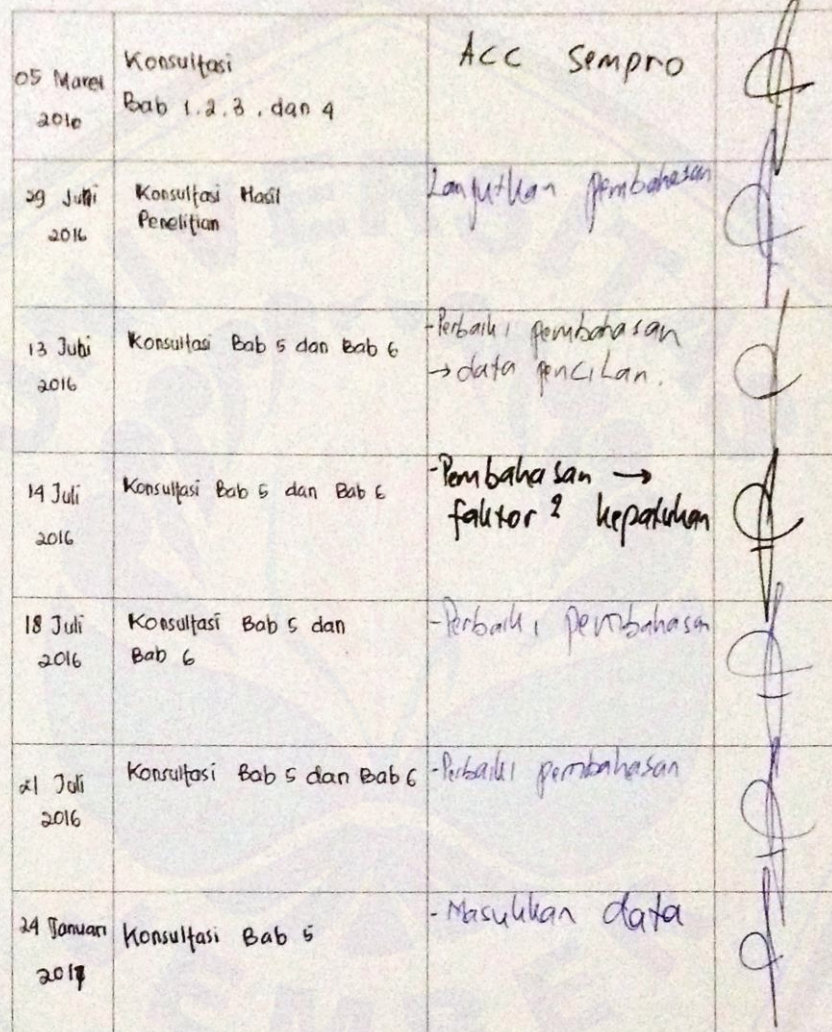 05 Maret
2016
Konsultasi
Bab 1.2.3. dan 4
ACC Sempro
29 Juni
2016
Konsultasi Hasil
Penelitian
Lanjutkan pembahasan
13 Juni
2016
Konsultasi Bab 5 dan Bab 6
-Perbaiki pembahasan
→ data pencilan.
14 Juli
2016
Konsultasi Bab 5 dan Bab 6
-Pembahasan →
faktor 2 kepatuhan
18 Juli
2016
Konsultasi Bab 5 dan
Bab 6
-Perbaiki pembahasan
21 Juli
2016
Konsultasi Bab 5 dan Bab 6
-Perbaiki pembahasan
24 Januari
2017
Konsultasi Bab 5
- Masukkan data